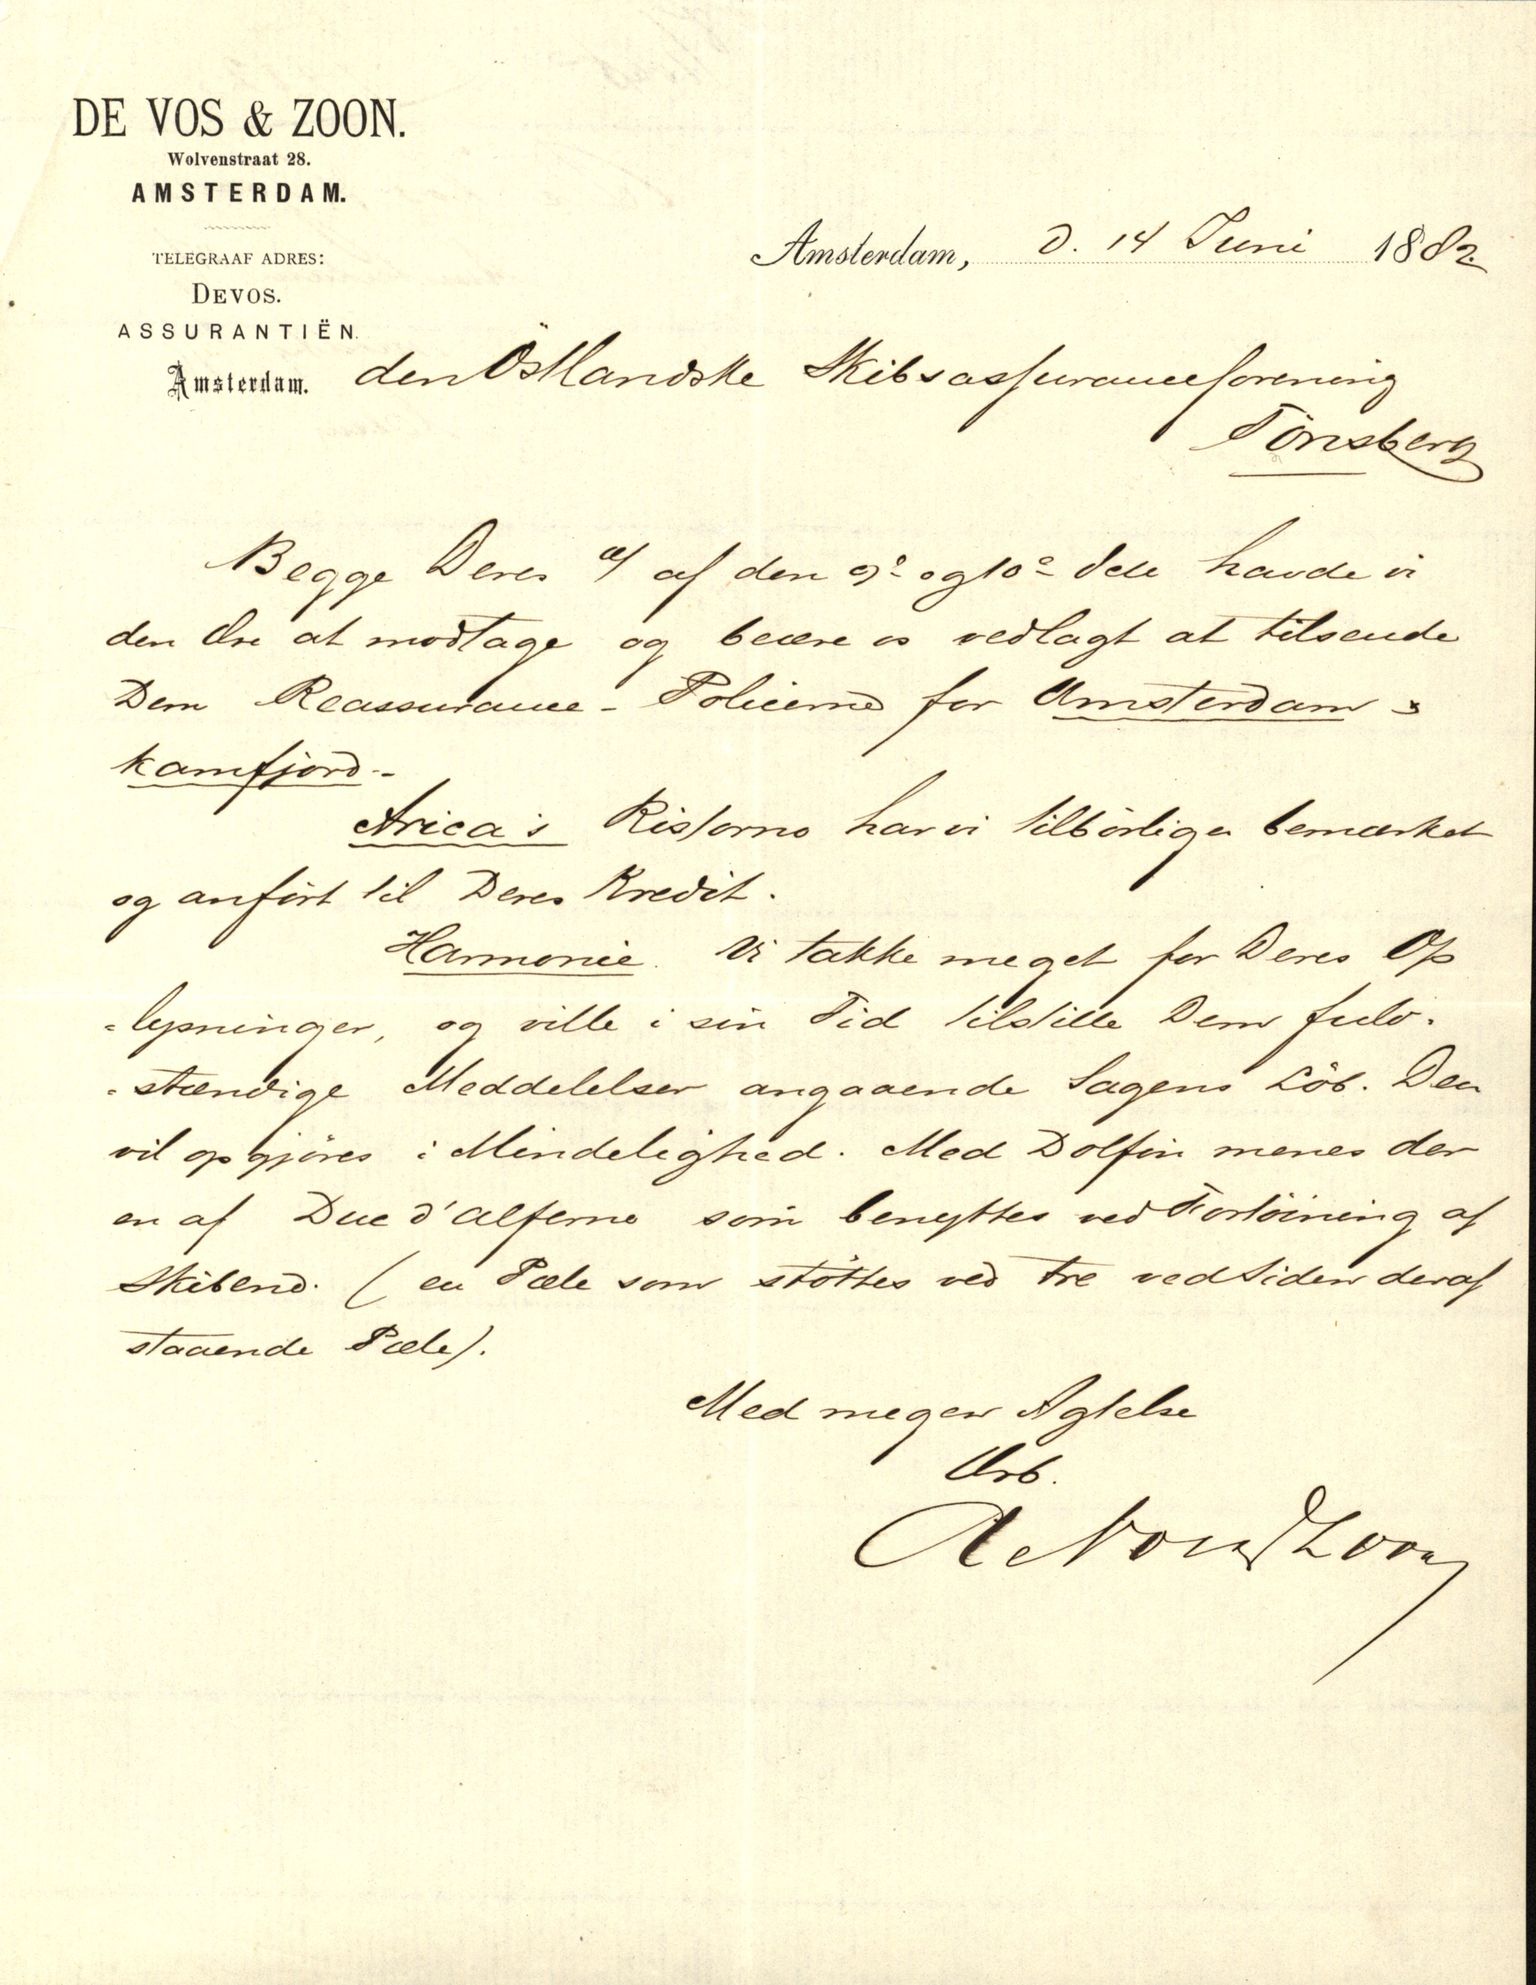 DE VOS & ZOON.
Wolvenstraat 28.
AMSTERDAM.
TELEGRAAF ADRES:
DEVOS.
ASSURANTIËN.
Amsterdam.
Amsterdam, d. 14 Juni 1882
den Östlandske Skibsassuranceforening
Tönsberg
Begge Deres æ/ af den 9de og 10de ds havde vi
den Ære at modtage og beære os vedlagt at tilsende
Dem Reassurance-Policerne for Amsterdam &
Kamfjord.-
Arica's Ristorno har vi tilbörligen bemærket
og anfört til Deres Kredit.
Harmonie. Vi takke meget for Deres Op
=lysninger, og ville i sin Tid tilstille Dem fuld-
-stændige Meddelelser angaaende Sagens Löb. Den
vil opgjöres i Mindelighed. Med Dolfin menes der
en af Duc d'alferne som benyttes ved Fortöining af
Skibene. (en Pæle som stöttes ved tre ved Siden deraf
staaende Pæle).
Med megen Agtelse
Ærb.
De Vos & Zoon